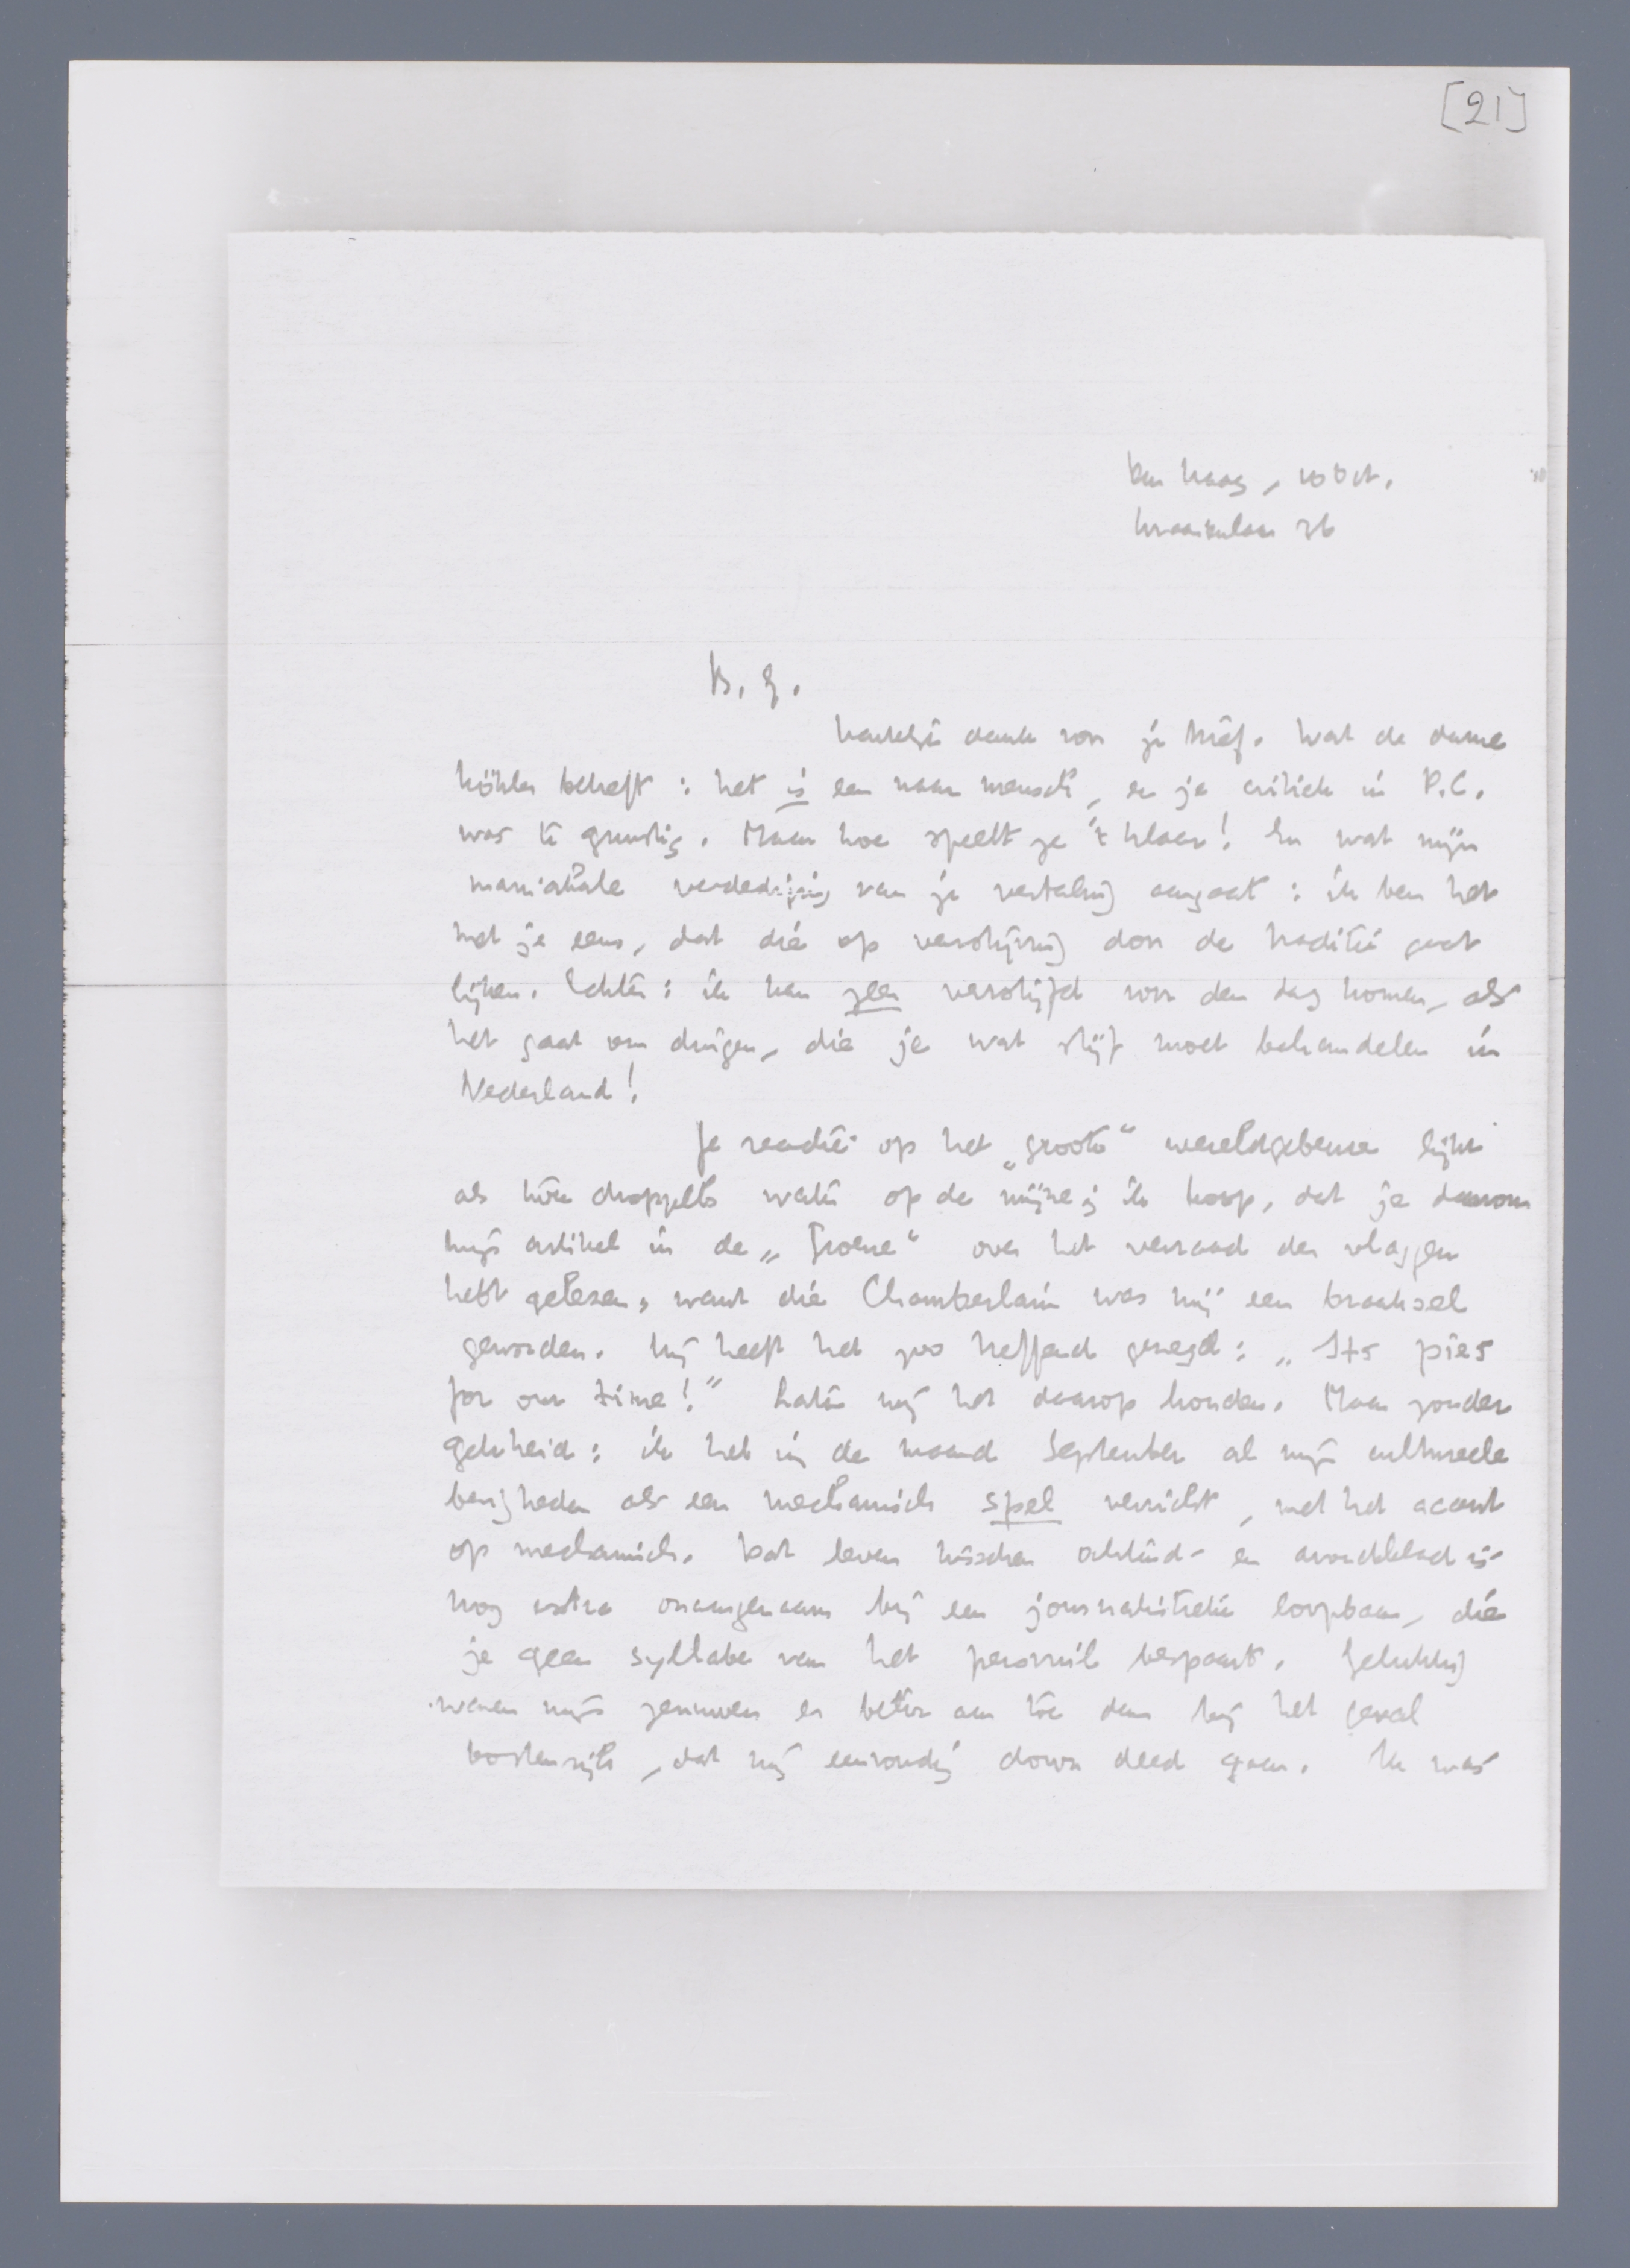 [21]
Den Haag, 10 Oct.
Kraaienlaan 36
B. G.
Hartelijk dank voor je brief. Wat de dame
Köhler betreft: het is een naar mensch, en je critiek in P.C.
was te gunstig. Maar hoe speelt ze 't klaar! En wat mijn
maniakale verdediging van je vertaling aangaat: ik ben het
met je eens, dat die op verstijving door de traditie gaat
lijken. Echter: ik kan geen verstijfd voor den dag komen, als
het gaat om dingen, die je wat stijf moet behandelen in
Nederland!
Je reactie op het „groote” wereldgebeuren lijkt
als twee droppels water op de mijne; ik hoop, dat je daarom
mijn artikel in de „Groene” over het verraad der vlaggen
hebt gelezen, want die Chamberlain was mij een braaksel
geworden. Hij heeft het zoo treffend gezegd: „Its pies
for our time!” Laten wij het daarop houden. Maar zonder
gekheid: ik heb in de maand September al mijn cultureele
bezigheden als een mechanisch spel verricht, met het accent
op mechanisch. Dat leven tusschen ochtend- en avondblad is
nog extra onaangenaam bij een journalistieke loopbaan, die
je geen syllabe van het persvuil bespaart. Gelukkig
waren mijn zenuwen er beter aan toe dan bij het geval
Oostenrijk, dat mij eenvoudig down deed gaan. Ik was